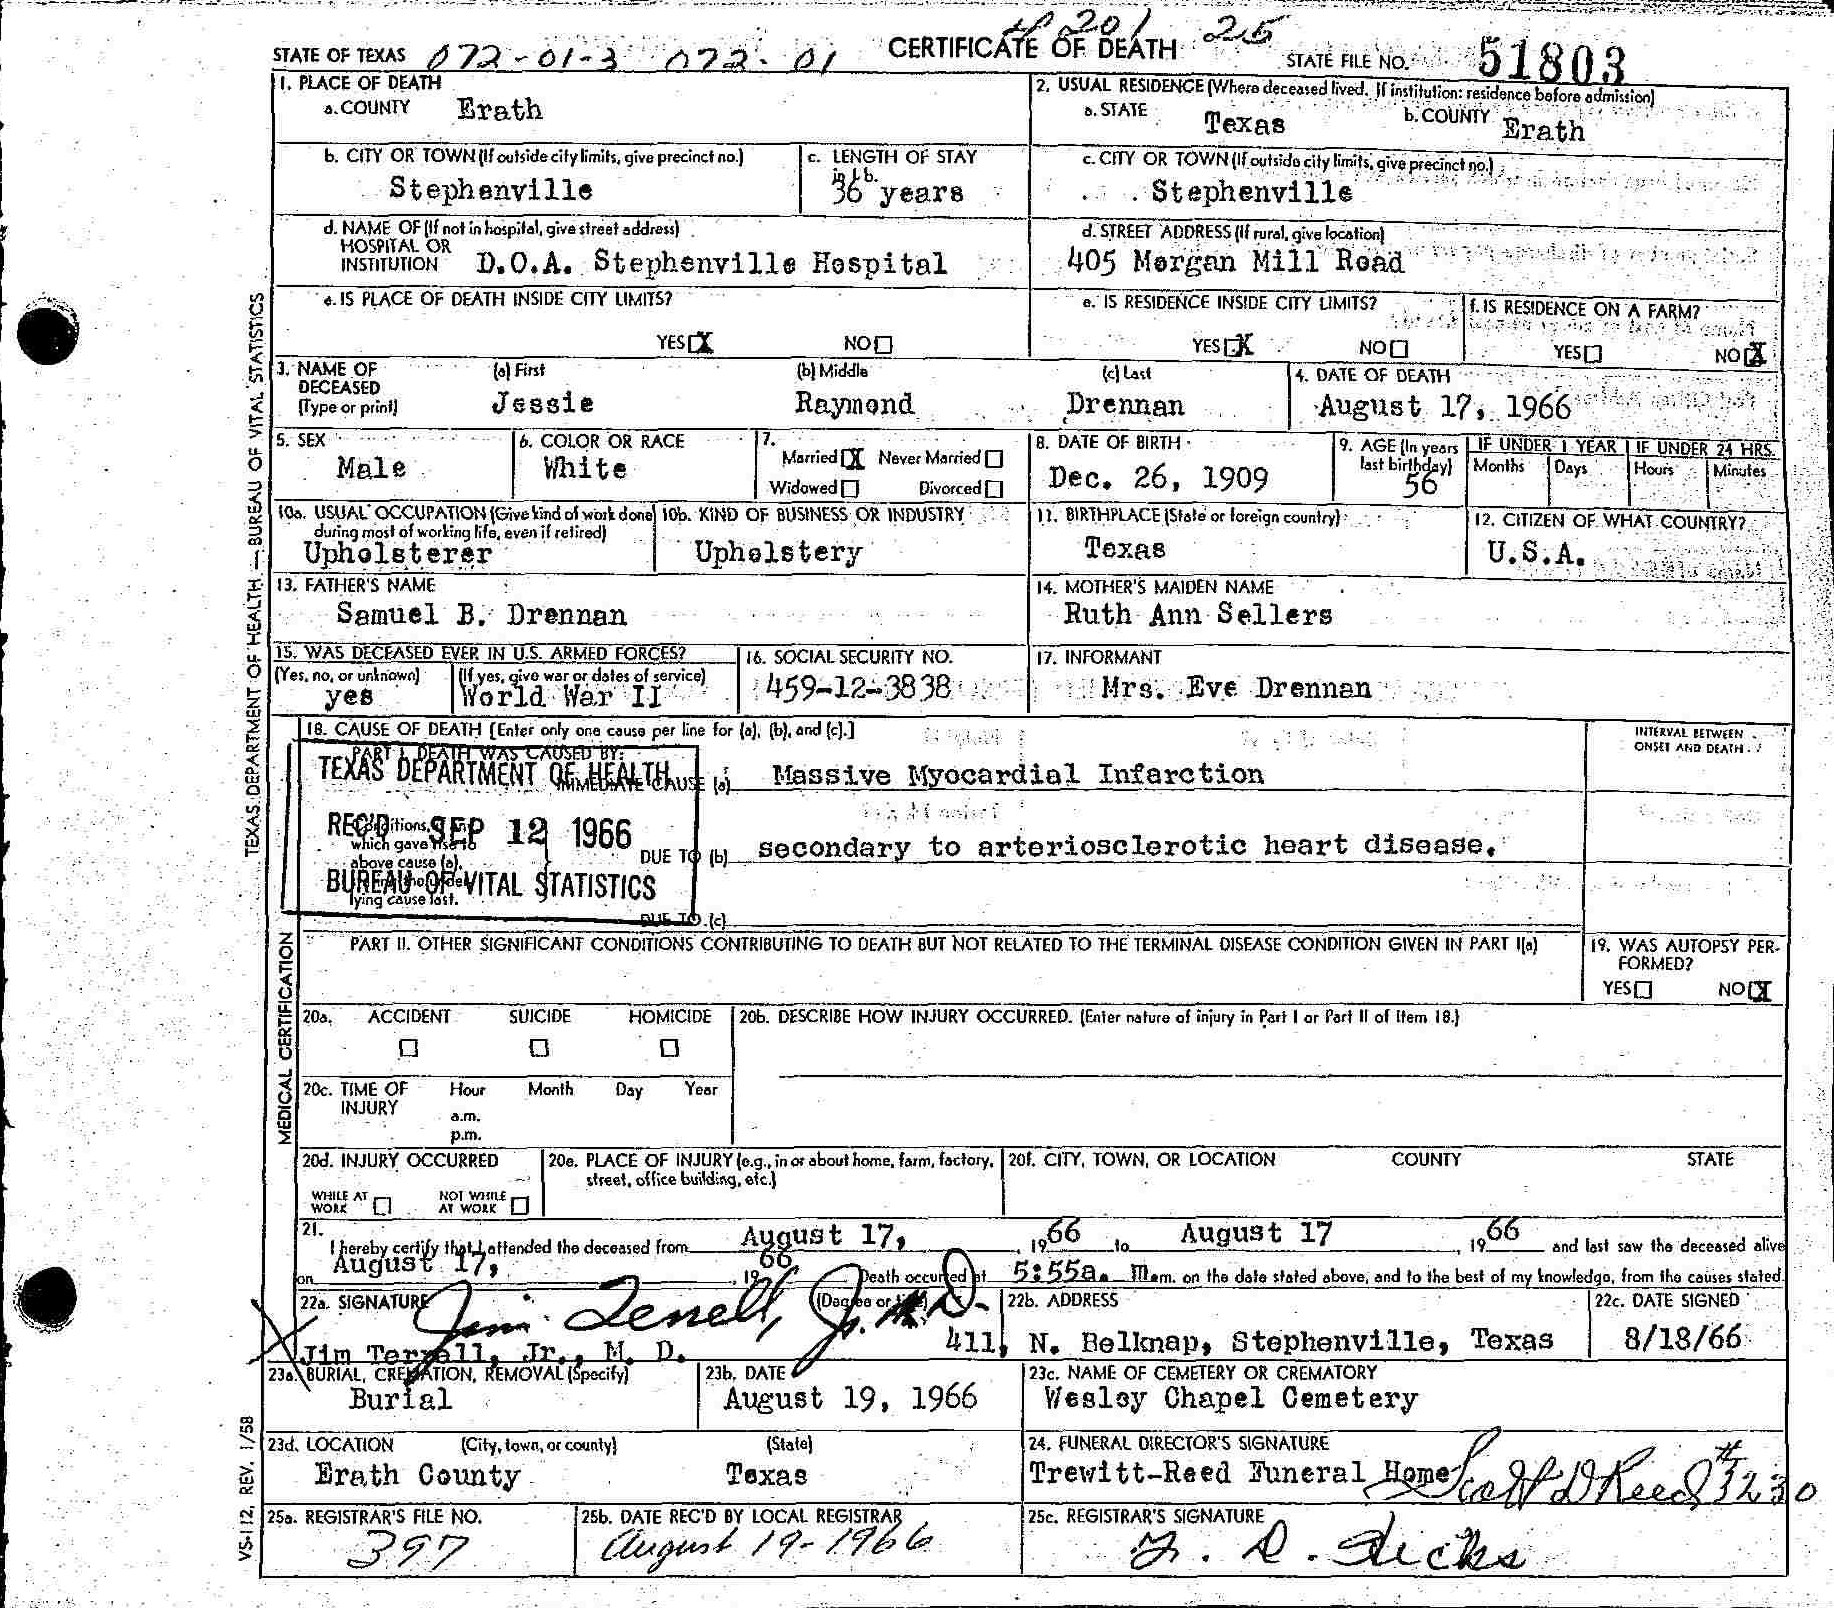 # 201 25
STATE OF TEXAS 072-01-3 072-01 CERTIFICATE OF DEATH STATE FILE NO. 51803
1. PLACE OF DEATH
a. COUNTY Erath
2. USUAL RESIDENCE (Where deceased lived. If institution: residence before admission)
a. STATE Texas b. COUNTY Erath
b. CITY OR TOWN (If outside city limits, give precinct no.) Stephenville
c. LENGTH OF STAY in 1b. 36 years
c. CITY OR TOWN (If outside city limits, give precinct no.) Stephenville
d. NAME OF (If not in hospital, give street address)
HOSPITAL OR
INSTITUTION D.O.A. Stephenville Hospital
d. STREET ADDRESS (If rural, give location)
405 Morgan Mill Road
e. IS PLACE OF DEATH INSIDE CITY LIMITS?
YES X NO
e. IS RESIDENCE INSIDE CITY LIMITS?
YES X NO
f. IS RESIDENCE ON A FARM?
YES NO X
3. NAME OF DECEASED (Type or print)
(a) First Jessie
(b) Middle Raymond
(c) Last Drennan
4. DATE OF DEATH
August 17, 1966
5. SEX Male
6. COLOR OR RACE White
7. Married X Never Married
Widowed Divorced
8. DATE OF BIRTH
Dec. 26, 1909
9. AGE (In years last birthday) 56
IF UNDER 1 YEAR Months Days
IF UNDER 24 HRS. Hours Minutes
10a. USUAL OCCUPATION (Give kind of work done during most of working life, even if retired)
Upholsterer
10b. KIND OF BUSINESS OR INDUSTRY
Upholstery
11. BIRTHPLACE (State or foreign country)
Texas
12. CITIZEN OF WHAT COUNTRY?
U.S.A.
13. FATHER'S NAME
Samuel B. Drennan
14. MOTHER'S MAIDEN NAME
Ruth Ann Sellers
15. WAS DECEASED EVER IN U.S. ARMED FORCES?
(Yes, no, or unknown) yes
(If yes, give war or dates of service) World War II
16. SOCIAL SECURITY NO.
459-12-3838
17. INFORMANT
Mrs. Eve Drennan
18. CAUSE OF DEATH [Enter only one cause per line for (a), (b), and (c).]
INTERVAL BETWEEN
ONSET AND DEATH
PART I. DEATH WAS CAUSED BY:
TEXAS DEPARTMENT OF HEALTH
IMMEDIATE CAUSE (a) Massive Myocardial Infarction
REC'D SEP 12 1966
Conditions,
which gave rise to
above cause (a),
DUE TO (b) secondary to arteriosclerotic heart disease.
BUREAU OF VITAL STATISTICS
lying cause last.
DUE TO (c)
PART II. OTHER SIGNIFICANT CONDITIONS CONTRIBUTING TO DEATH BUT NOT RELATED TO THE TERMINAL DISEASE CONDITION GIVEN IN PART I(a)
19. WAS AUTOPSY PERFORMED?
YES NO X
20a. ACCIDENT SUICIDE HOMICIDE
20b. DESCRIBE HOW INJURY OCCURRED. (Enter nature of injury in Part I or Part II of Item 18.)
20c. TIME OF INJURY Hour Month Day Year
a.m.
p.m.
20d. INJURY OCCURRED
WHILE AT WORK NOT WHILE AT WORK
20e. PLACE OF INJURY (e.g., in or about home, farm, factory, street, office building, etc.)
20f. CITY, TOWN, OR LOCATION COUNTY STATE
21.
I hereby certify that I attended the deceased from August 17, 1966 to August 17, 1966 and last saw the deceased alive
on August 17, 1966. Death occurred at 5:55a. M.m. on the date stated above, and to the best of my knowledge, from the causes stated.
22a. SIGNATURE (Degree or title) Jim Terrell, Jr. M.D.
Jim Terrell, Jr., M. D.
22b. ADDRESS
411, N. Belknap, Stephenville, Texas
22c. DATE SIGNED
8/18/66
23a. BURIAL, CREMATION, REMOVAL (Specify)
Burial
23b. DATE
August 19, 1966
23c. NAME OF CEMETERY OR CREMATORY
Wesley Chapel Cemetery
23d. LOCATION (City, town, or county) (State)
Erath County Texas
24. FUNERAL DIRECTOR'S SIGNATURE
Trewitt-Reed Funeral Home Scott D Reed #3230
25a. REGISTRAR'S FILE NO.
397
25b. DATE REC'D BY LOCAL REGISTRAR
August 19-1966
25c. REGISTRAR'S SIGNATURE
Hicks
TEXAS DEPARTMENT OF HEALTH — BUREAU OF VITAL STATISTICS
MEDICAL CERTIFICATION
VS-112, REV. 1/58